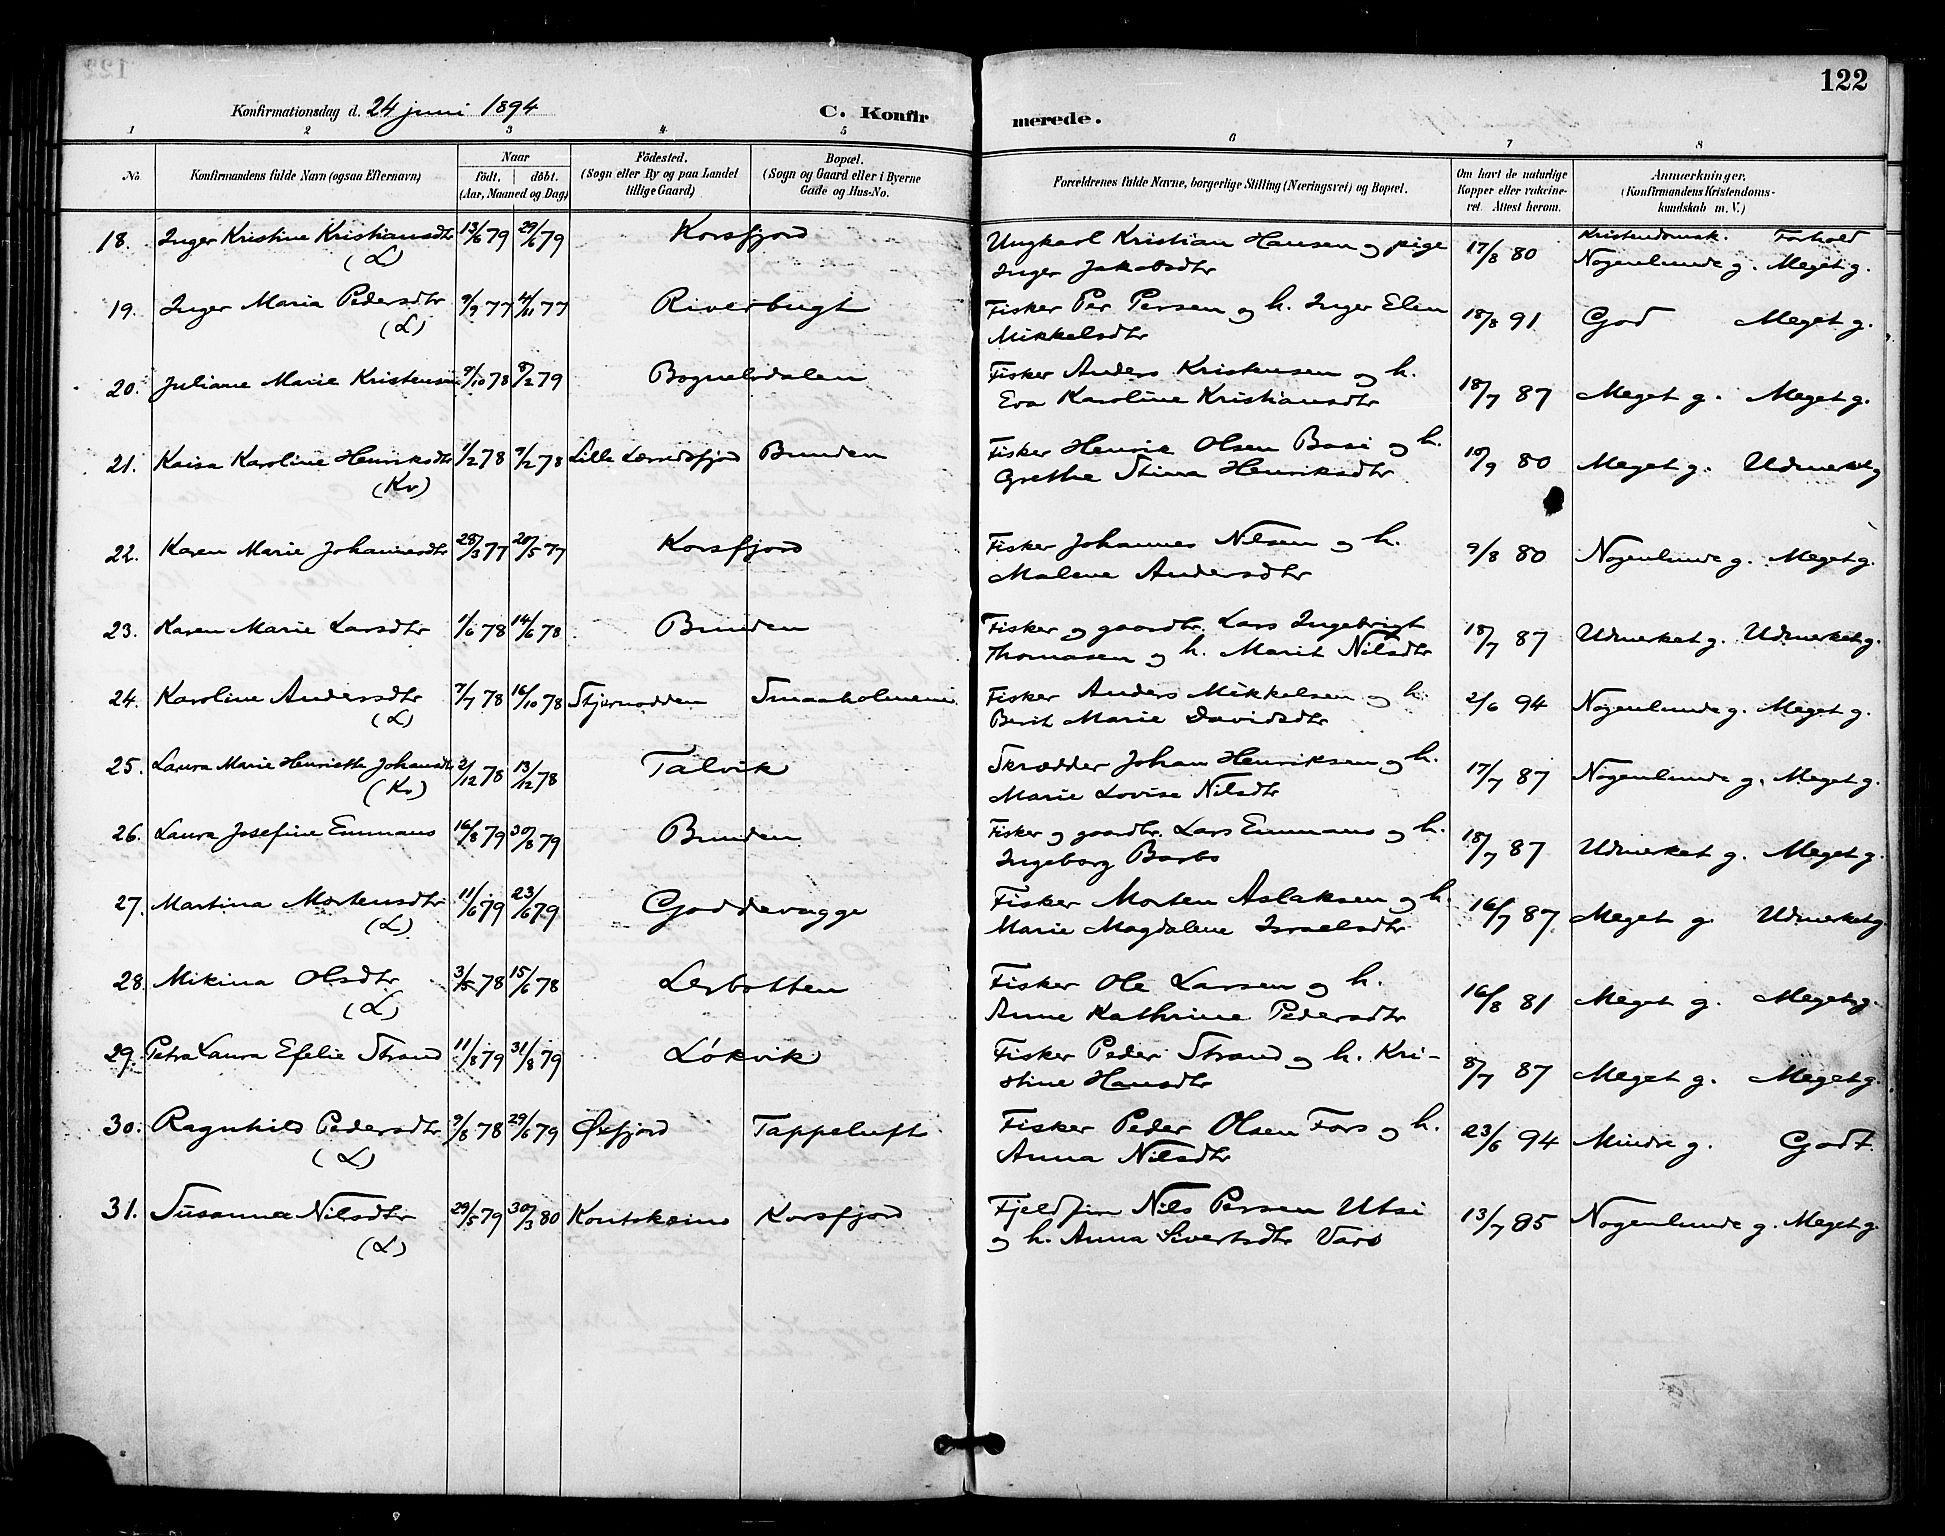 122
Konfirmationsdag d. 24 juni 1894
C. Konfirmerede.
1 2 3 4 5 6 7 8
No Konfirmandens fulde Navn (ogsaa Efternavn) Naar født. døbt. (Aar, Maaned og Dag) Fødested. (Sogn eller By og paa Landet tillige Gaard) Bopæl. (Sogn og Gaard eller i Byerne Gade og Hus-No. Forældrenes fulde Navne, borgerlige Stilling (Næringsvei) og Bopæl. Om havt de naturlige Kopper eller vakcineret. Attest herom. Anmærkninger, (Konfirmandens Kristendomskundskab m. V.)
Kristendomsk. Forhold
18. Inger Kristine Kristiansdtr 13/6 79 29/6 79 Korsfjord Ungkarl Kristian Hansen og pige 17/8 80 Nogenlunde g. Meget g.
(L) Inger Jakobsdtr
19. Inger Maria Pedersdtr 9/9 77 4/11 77 Riverbugt Fisker Per Persen og h. Inger Elen 18/8 91 God Meget g.
(L) Mikkelsdtr
20. Juliane Marie Kristensen 9/10 78 8/2 79 Bognelvdalen Fisker Anders Kristensen og h. 18/7 87 Meget g. Meget g.
Eva Karoline Kristiansdtr
21. Kaisa Karoline Henriksdtr 1/2 78 9/2 78 Lille Lerredsfjord Bunden Fisker Henrik Olsen Basi og h. 18/9 80 Meget g. Udmerket g
(Kv) Grethe Stina Henriksdtr
22. Karen Marie Johannesdtr 28/3 77 20/5 77 Korsfjord Fisker Johannes Nilsen og h. 9/8 80 Nogenlunde g. Meget g.
Malene Andersdtr
23. Karen Marie Larsdtr 1/6 78 14/6 78 Bunden Fisker og gaardbr. Lars Ingebrigt 18/7 87 Udmerket g. Udmerket g.
Thomasen og h. Marit Nilsdtr
24. Karoline Andersdtr 7/7 78 16/10 78 Stjernodden Smaaholmene Fisker Anders Mikkelsen og h. 2/6 94 Nogenlunde g. Meget g.
(L) Berit Marie Davidsdtr
25. Laura Marie Henriette Johansdtr 2/12 78 13/12 78 Talvik Skrædder Johan Henriksen og h. 17/7 87 Nogenlunde g. Meget g.
(Kv) Marie Lovise Nilsdtr
26. Laura Josefine Emmaus 16/8 79 30/8 79 Bunden Fisker og gaardbr. Lars Emmaus og h. 18/7 87 Udmerket g. Meget g.
Ingeborg Barbo
27. Martina Mortensdtr 11/6 79 23/6 79 Goddevagge Fisker Morten Aslaksen og h. 16/7 87 Meget g. Udmerket g
(L) Marie Magdalene Israelsdtr
28. Mikina Olsdtr 3/5 78 15/6 78 Lerbotten Fisker Ole Larsen og h. 16/8 81 Meget g. Meget g.
(L) Anne Kathrine Pedersdtr
29. Petra Laura Efelie Strand 11/8 79 31/8 79 Løkvik Fisker Peder Strand og h. Kri- 8/7 87 Meget g. Meget g.
stine Hansdtr
30. Ragnhild Pedersdtr 9/8 78 29/6 79 Øxfjord Tappeluft Fisker Peder Olsen Fors og h. 23/6 94 Mindre g. Godt.
(L) Anna Nilsdtr
31. Susanna Nilsdtr 29/5 79 30/3 80 Koutokeino Korsfjord Fjeldfin Nils Persen Utsi 13/7 85 Nogenlunde g. Meget g.
(L) og h. Anna Sivertsdtr Vars